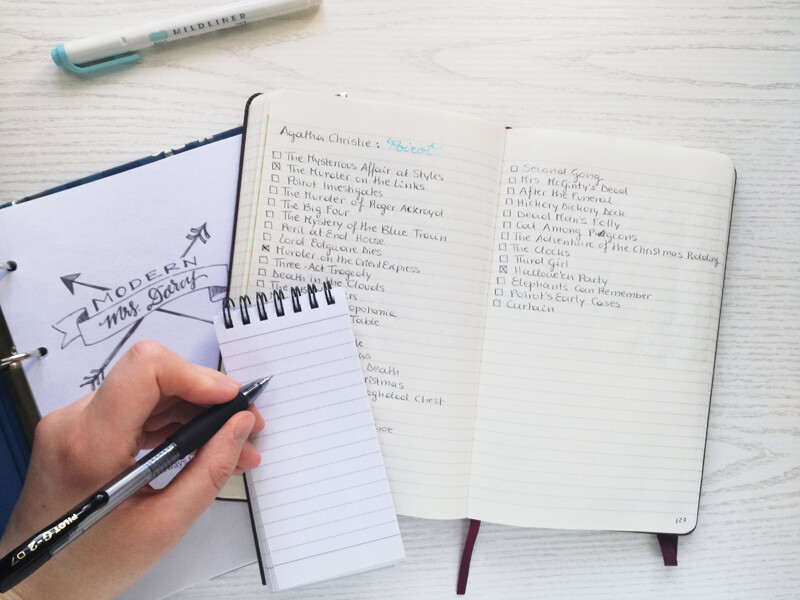 MILDLINER
Agatha Christie: Poirot
The Mysterious Affair at Styles
The Murder on the Links
Poirot Investigates
The Murder of Roger Ackroyd
The Big Four
The Mystery of the Blue Train
Peril at End House
Lord Edgware Dies
Murder on the Orient Express
Three-Act Tragedy
Death in the Clouds
The
Table
Death
Christmas
Chest
Second Gong
Mrs McGinty's Dead
After the Funeral
Hickory Dickory Dock
Dead Man's Folly
Cat Among Pigeons
The Adventure of the Christmas Pudding
The Clocks
Third Girl
Hallowe'en Party
Elephants Can Remember
Poirot's Early Cases
Curtain
127
MODERN
Mrs. Darcy
PILOT G-2 07